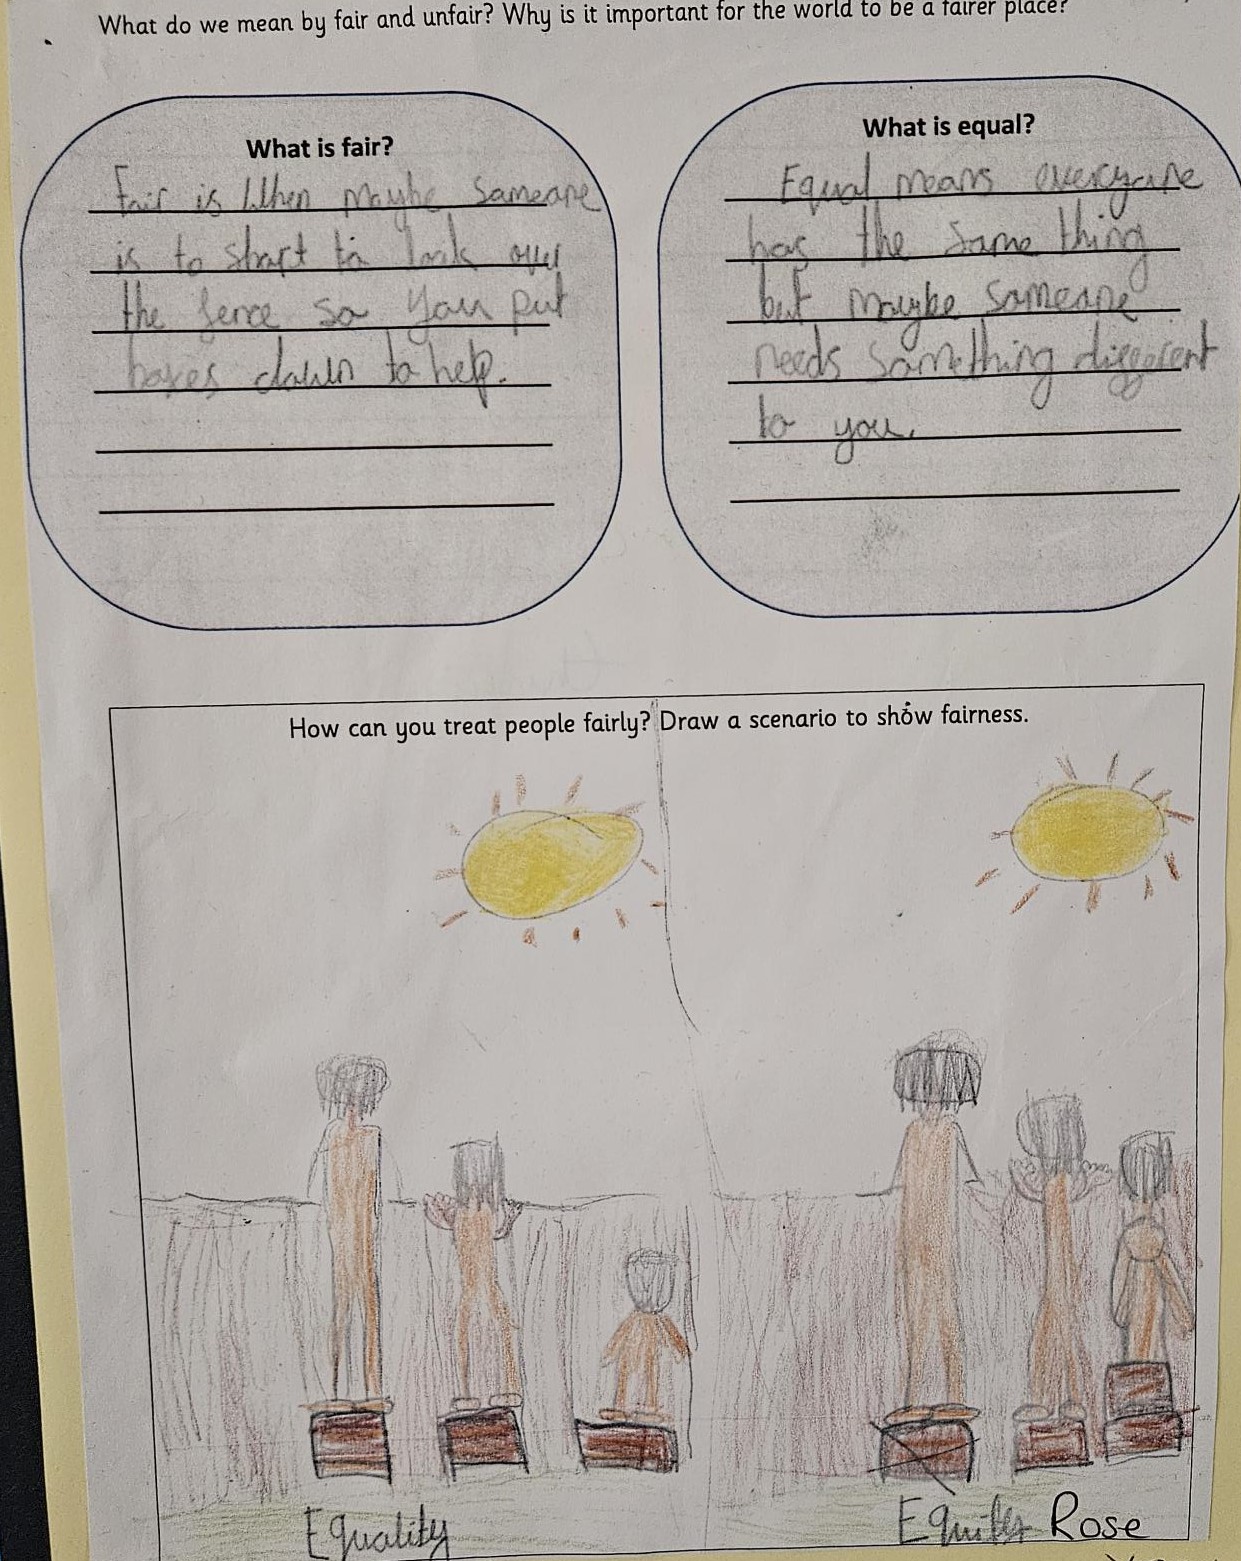 What do we mean by fair and unfair? Why is it important for the world to be a fairer place?
What is fair?
Fair is When maybe someone
is to short to look over
the fence so you put
boxes down to help.
What is equal?
Equal means everyone
has the same thing
but maybe someone
needs something different
to you.
How can you treat people fairly? Draw a scenario to show fairness.
Equality
Equity Rose